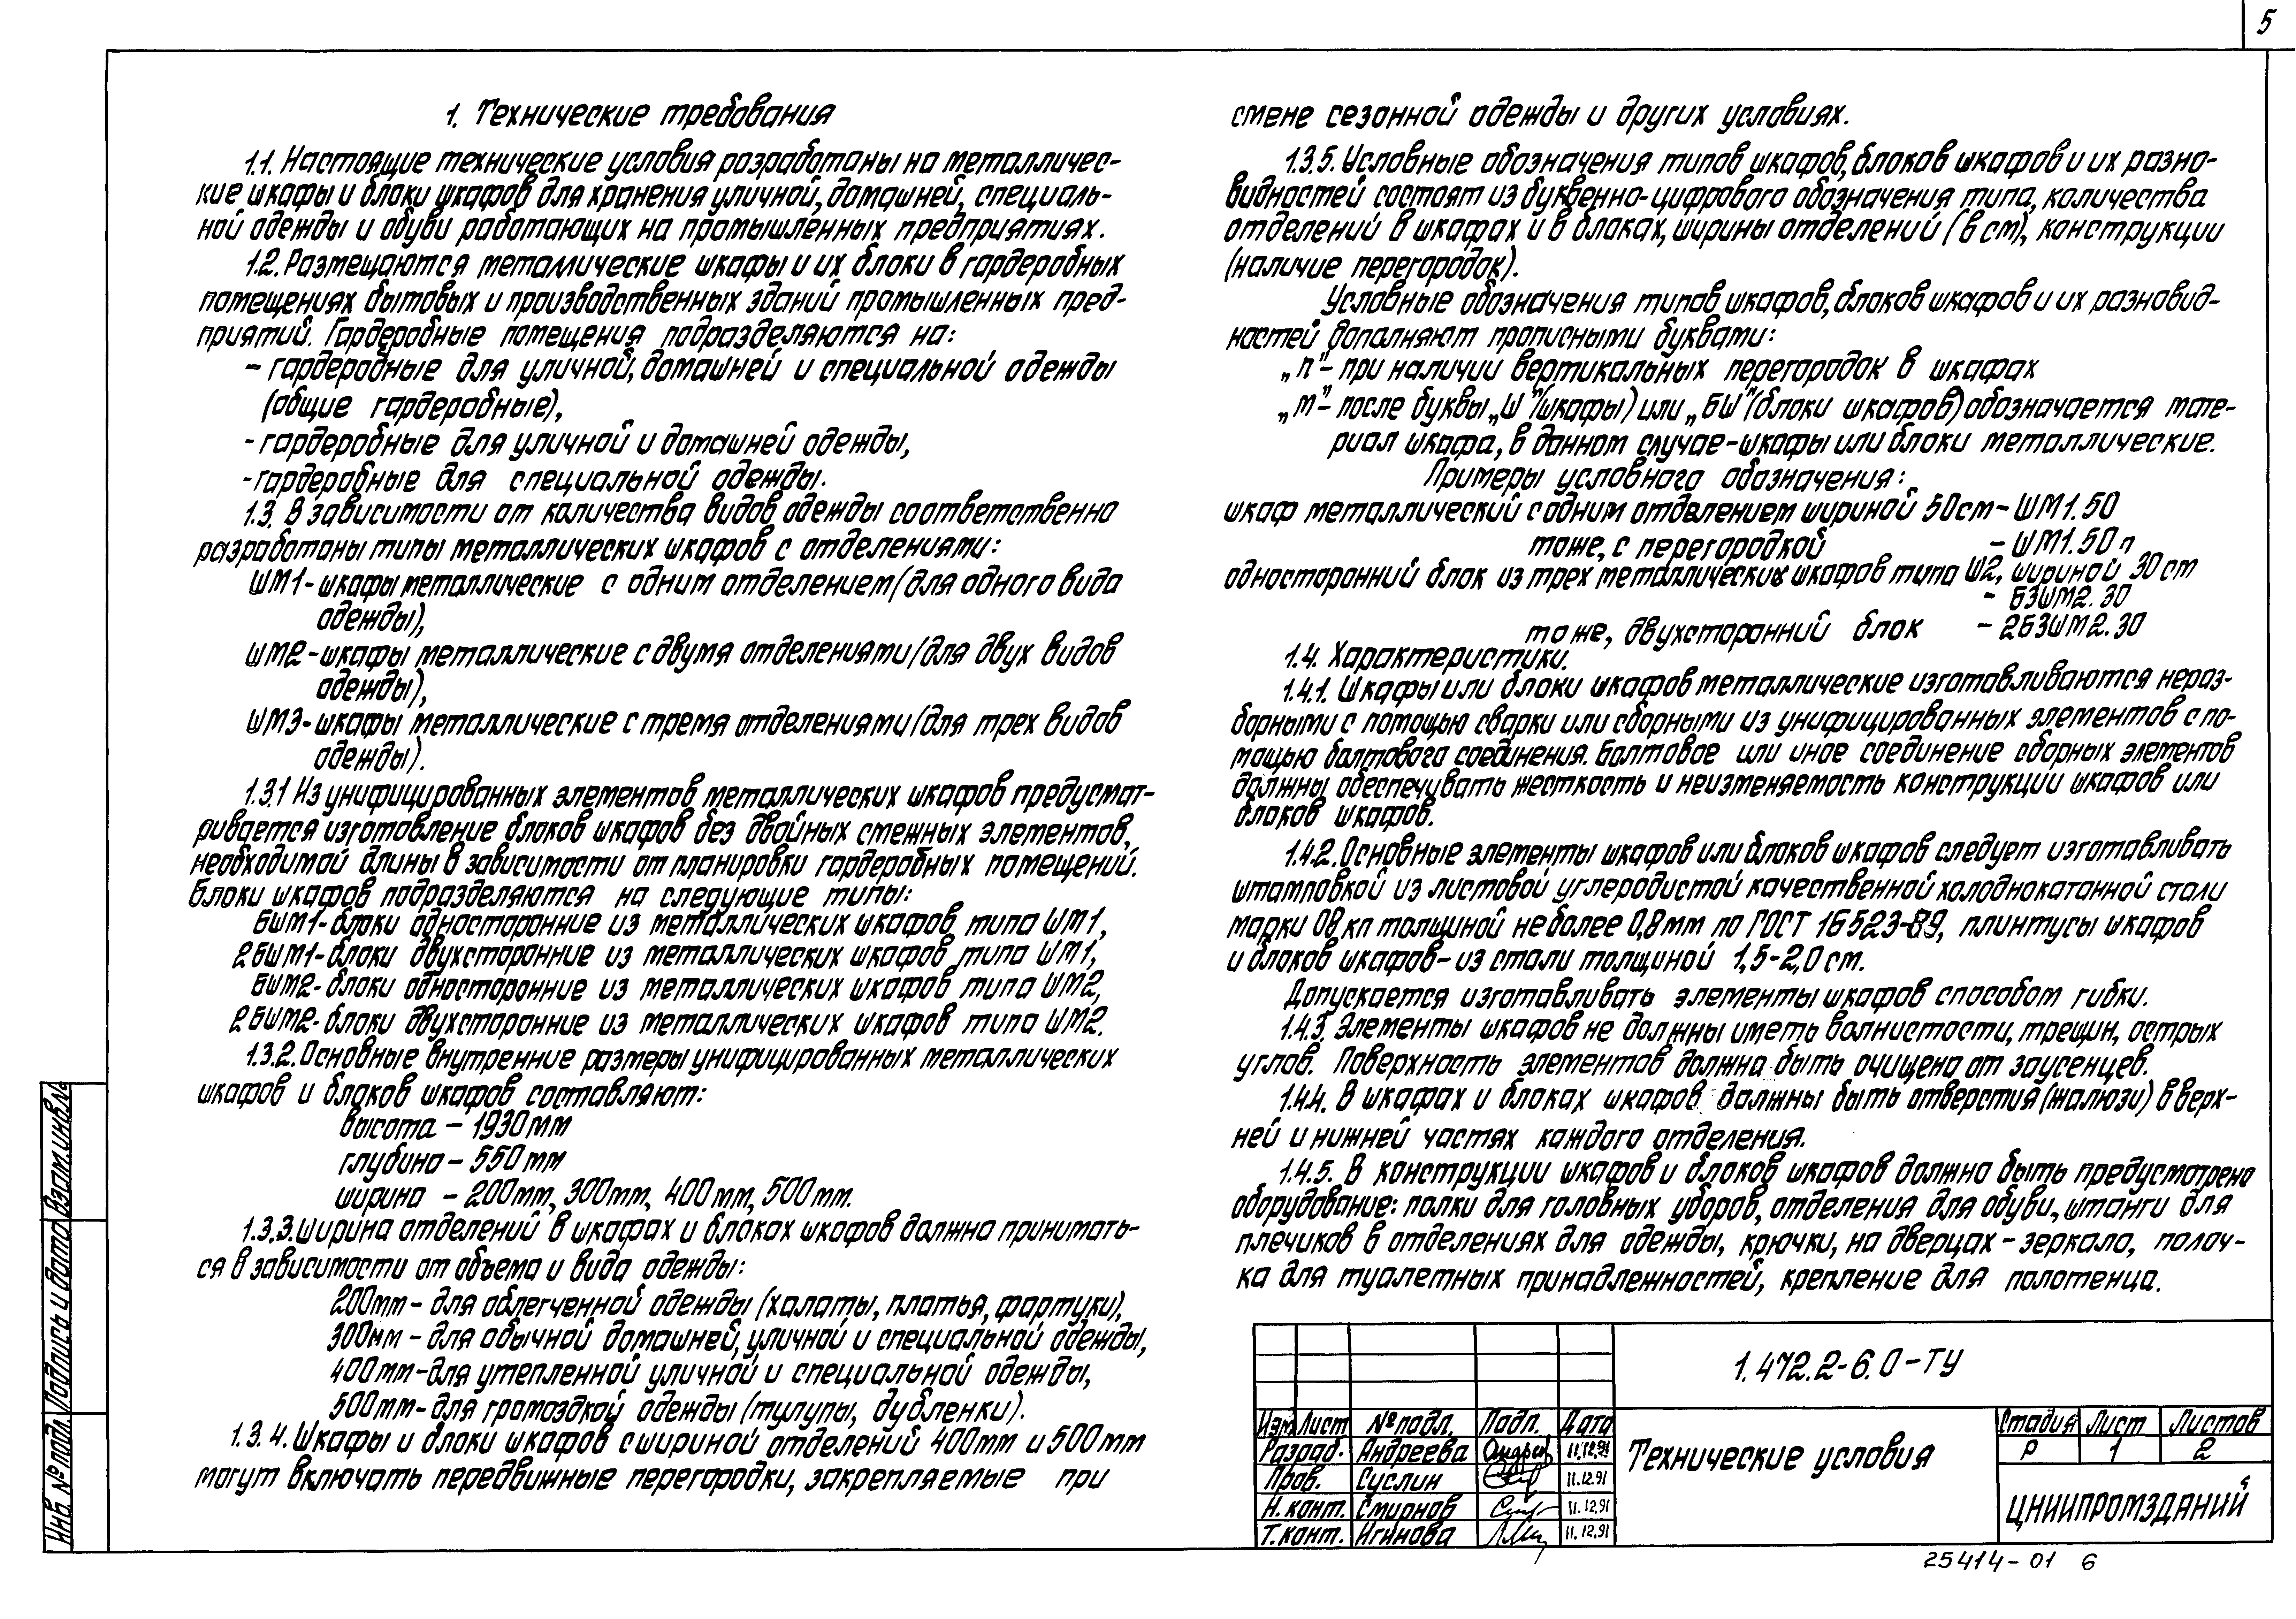 5
1. Технические требования
1.1. Настоящие технические условия разработаны на металличес-
кие шкафы и блоки шкафов для хранения уличной, домашней, специаль-
ной одежды и обуви работающих на промышленных предприятиях.
1.2. Размещаются металлические шкафы и их блоки в гардеробных
помещениях бытовых и производственных зданий промышленных пред-
приятий. Гардеробные помещения подразделяются на:
- гардеробные для уличной, домашней и специальной одежды
(общие гардеробные),
- гардеробные для уличной и домашней одежды,
- гардеробные для специальной одежды.
1.3. В зависимости от количества видов одежды соответственно
разработаны типы металлических шкафов с отделениями:
ШМ1- шкафы металлические с одним отделением (для одного вида
одежды),
ШМ2- шкафы металлические с двумя отделениями (для двух видов
одежды),
ШМ3- шкафы металлические с тремя отделениями (для трех видов
одежды).
1.3.1 Из унифицированных элементов металлических шкафов предусмат-
ривается изготовление блоков шкафов без двойных смежных элементов,
необходимой длины в зависимости от планировки гардеробных помещений.
Блоки шкафов подразделяются на следующие типы:
БШМ1- блоки односторонние из металлических шкафов типа ШМ1,
2БШМ1- блоки двухсторонние из металлических шкафов типа ШМ1,
БШМ2- блоки односторонние из металлических шкафов типа ШМ2,
2БШМ2- блоки двухсторонние из металлических шкафов типа ШМ2.
1.3.2. Основные внутренние размеры унифицированных металлических
шкафов и блоков шкафов составляют:
высота – 1930 мм
глубина – 550 мм
ширина – 200мм, 300мм, 400мм, 500мм.
1.3.3. Ширина отделений в шкафах и блоках шкафов должна принимать-
ся в зависимости от объема и вида одежды:
200мм - для облегченной одежды (халаты, платья, фартуки),
300мм - для обычной домашней, уличной и специальной одежды,
400мм - для утепленной уличной и специальной одежды,
500мм - для громоздкой одежды (тулупы, дубленки).
1.3.4. Шкафы и блоки шкафов с шириной отделений 400мм и 500мм
могут включать передвижные перегородки, закрепляемые при
смене сезонной одежды и других условиях.
1.3.5. Условные обозначения типов шкафов, блоков шкафов и их разно-
видностей состоят из буквенно-цифрового обозначения типа, количества
отделений в шкафах и в блоках, ширины отделений (в см), конструкции
(наличие перегородок).
Условные обозначения типов шкафов, блоков шкафов и их разновид-
ностей дополняют прописными буквами:
„п"- при наличии вертикальных перегородок в шкафах
„М"- после буквы „Ш" (шкафы) или „БШ" (блоки шкафов) обозначается мате-
риал шкафа, в данном случае - шкафы или блоки металлические.
Примеры условного обозначения:
шкаф металлический с одним отделением шириной 50см – ШМ1.50
тоже, с перегородкой – ШМ1.50 п
односторонний блок из трех металлических шкафов типа Ш2, шириной 30 см
- Б3ШМ2.30
то же, двухсторонний блок – 2Б3ШМ2.30
1.4. Характеристики.
1.4.1. Шкафы или блоки шкафов металлические изготавливаются нераз-
борными с помощью сварки или сборными из унифицированных элементов с по-
мощью болтового соединения. Болтовое или иное соединение сборных элементов
должны обеспечивать жесткость и неизменяемость конструкции шкафов или
блоков шкафов.
1.4.2. Основные элементы шкафов или блоков шкафов следует изготавливать
штамповкой из листовой углеродистой качественной холоднокатанной стали
марки 08 кп толщиной не более 0,8 мм по ГОСТ 16523-89, плинтусы шкафов
и блоков шкафов - из стали толщиной 1,5-2,0 см.
Допускается изготавливать элементы шкафов способом гибки.
1.4.3. Элементы шкафов не должны иметь волнистости, трещин, острых
углов. Поверхность элементов должна быть очищена от заусенцев.
1.4.4. В шкафах и блоках шкафов должны быть отверстия (жалюзи) в верх-
ней и нижней частях каждого отделения.
1.4.5. В конструкции шкафов и блоков шкафов должно быть предусмотрено
оборудование: полки для головных уборов, отделения для обуви, штанги для
плечиков в отделениях для одежды, крючки, на дверцах - зеркало, полоч-
ка для туалетных принадлежностей, крепление для полотенца.
1.472.2-6.0-ТУ
Изм Лист № подл. Подп. Дата
Разраб. Андреева 11.12.91
Пров. Суслин 11.12.91
Н. конт. Смирнов 11.12.91
Т. конт. Игинова 11.12.91
Технические условия
Стадия Лист Листов
Р 1 2
ЦНИИПРОМЗДАНИЙ
25414-01 6
Инв. № подл. Подпись и дата Взам. инв. №